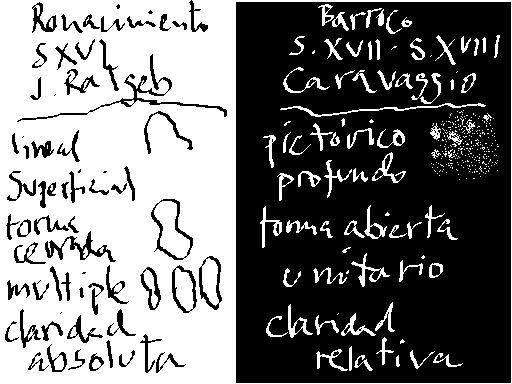 Renacimiento
S XVI
J. Ratgeb
lineal
superficial
forma
cerrada
multiple
claridad
absoluta
Barroco
S. XVII - S. XVIII
Caravaggio
pictórico
profundo
forma abierta
unitario
claridad
relativa